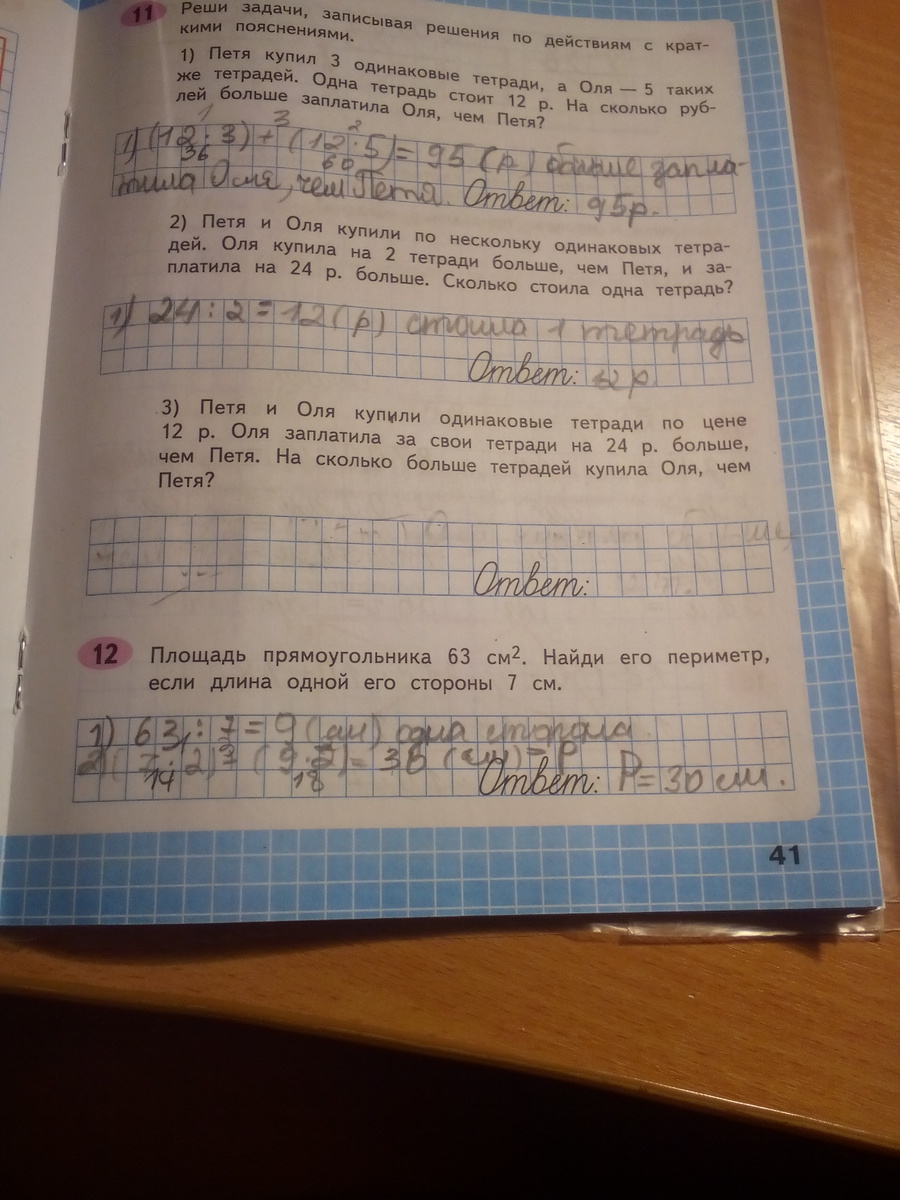 11 Реши задачи, записывая решения по действиям с крат-
кими пояснениями.
1) Петя купил 3 одинаковые тетради, а Оля — 5 таких
же тетрадей. Одна тетрадь стоит 12 р. На сколько руб-
лей больше заплатила Оля, чем Петя?
1 3 2
1) (12·3)+(12·5)=95(р) больше запла-
36 60
тила Оля, чем Петя. Ответ: 95р.
2) Петя и Оля купили по нескольку одинаковых тетра-
дей. Оля купила на 2 тетради больше, чем Петя, и за-
платила на 24 р. больше. Сколько стоила одна тетрадь?
1) 24:2=12(р) стоила 1 тетрадь
Ответ: 12р
3) Петя и Оля купили одинаковые тетради по цене
12 р. Оля заплатила за свои тетради на 24 р. больше,
чем Петя. На сколько больше тетрадей купила Оля, чем
Петя?
Ответ:
12 Площадь прямоугольника 63 см². Найди его периметр,
если длина одной его стороны 7 см.
1) 63:7=9(см) одна сторона
2)(7·2) (9·2)= (см)=P
14 18 Ответ: P=30 см.
41